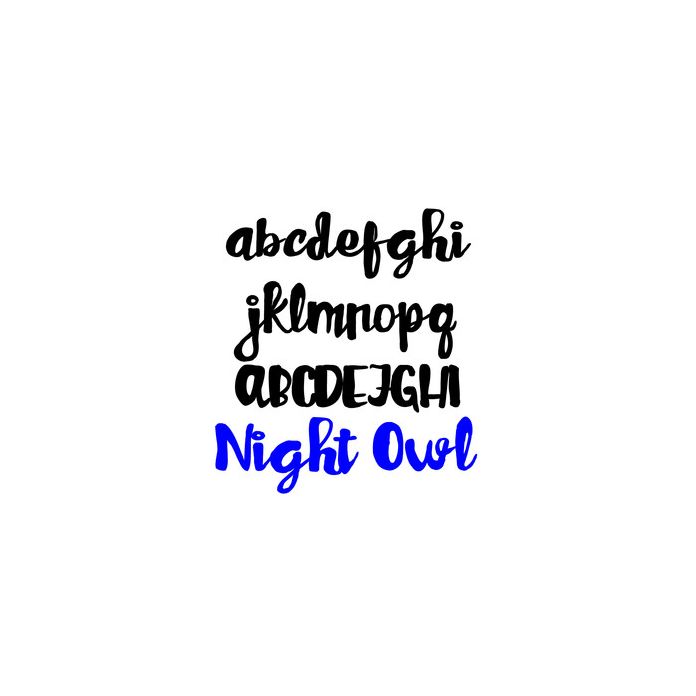 abcdefghi
jklmnopq
ABCDEFGHI
Night Owl